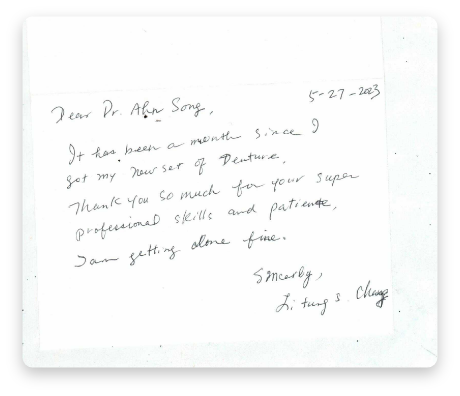 5-27-2023
Dear Dr. Ahn Song,
It has been a month since I
got my new set of Denture.
Thank you so much for your super
professional skills and patiente,
I am getting alone fine.
Sincerly,
Li tung s. Chang